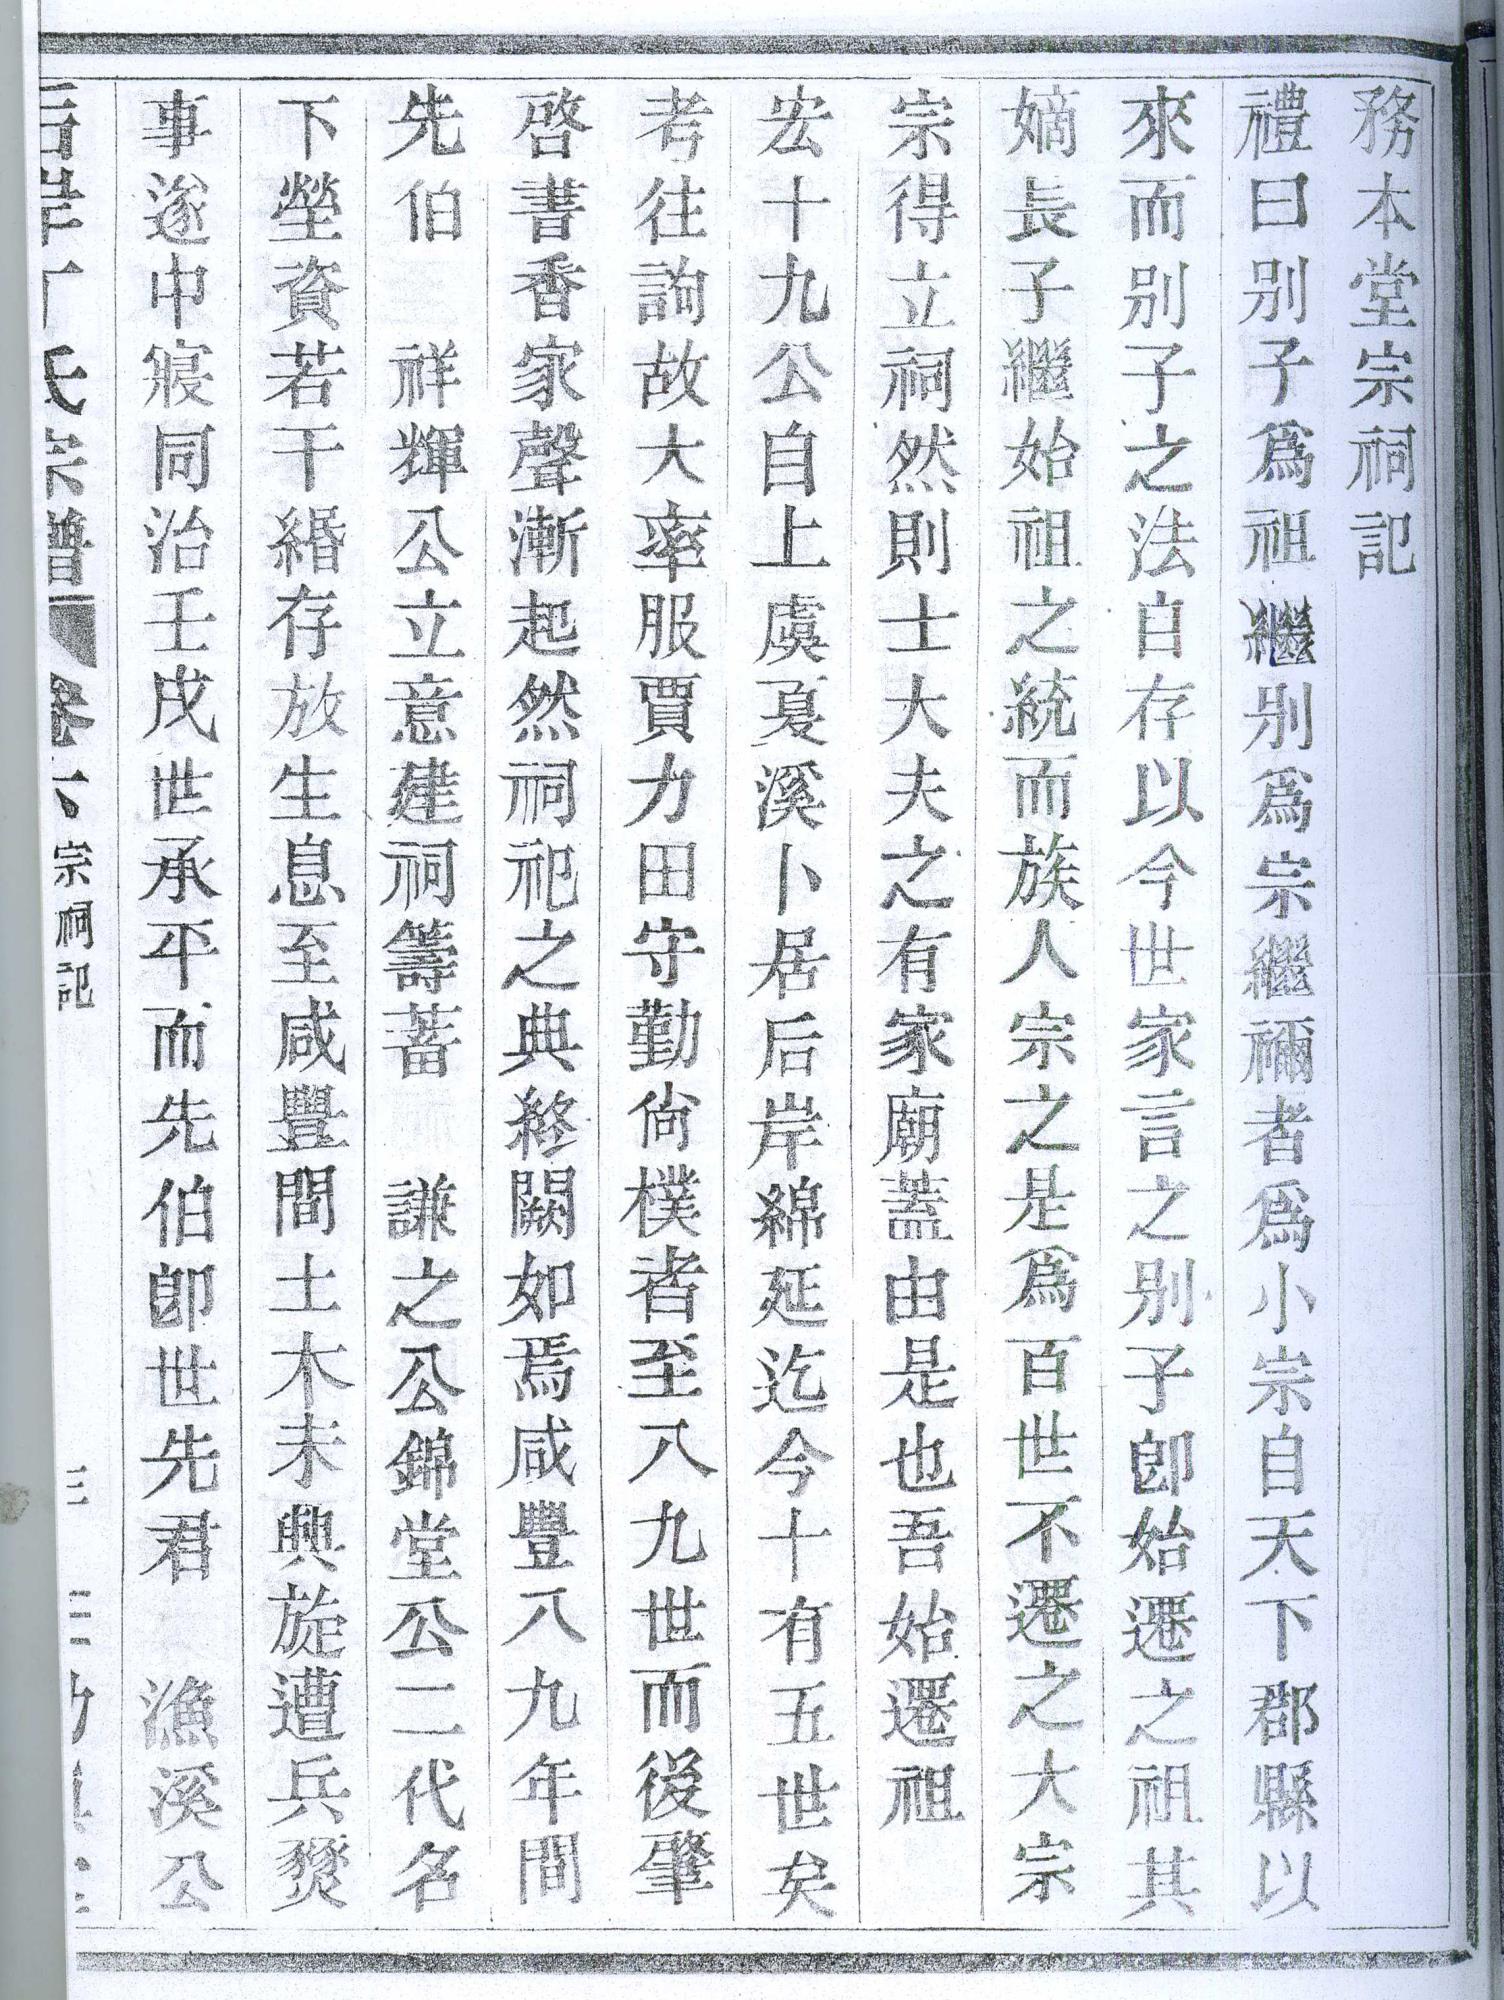 務本堂宗祠記
禮曰别子爲祖繼别爲宗繼禰者爲小宗自天下郡縣以
來而别子之法自存以今世家言之别子卽始遷之祖其
嫡長子繼始祖之統而族人宗之是爲百世不遷之大宗
宗得立祠然則士大夫之有家廟蓋由是也吾始遷祖
宏十九公自上虞夏溪卜居后岸綿延迄今十有五世矣
考往詢故大率服賈力田守勤尙樸者至八九世而後肇
啓書香家聲漸起然祠祀之典終闕如焉咸豐八九年間
先伯 祥輝公立意建祠籌蓄 謙之公錦堂公二代名
下塋資若干緡存放生息至咸豐間土木未興旋遭兵燹
事遂中寢同治壬戌世承平而先伯卽世先君 漁溪公
后岸丁氏宗譜 卷六 宗祠記 三